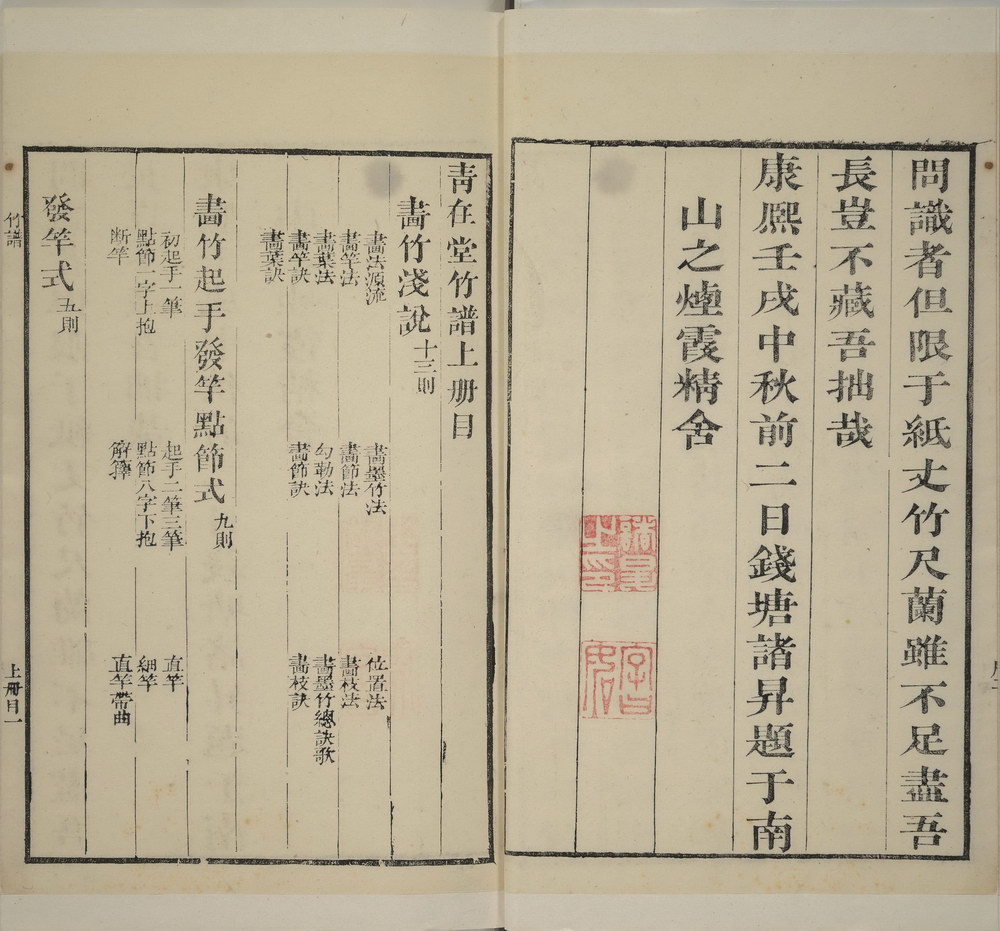 問識者但限于紙丈竹尺蘭雖不足盡吾
長豈不藏吾拙哉
康熙壬戌中秋前二日錢塘諸昇題于南
山之煙霞精舍
青在堂竹譜上册目
畫竹淺說 十三則
畫法源流 畫墨竹法 位置法
畫竿法 畫節法 畫枝法
畫葉法 勾勒法 畫墨竹總訣歌
畫竿訣 畫節訣 畫枝訣
畫葉訣
畫竹起手發竿點節式 九則
初起手一筆 起手二筆三筆 直竿
點節一字上抱 點節八字下抱 細竿
断竿 解籜 直竿帶曲
發竿式 五則
竹譜
上册目一